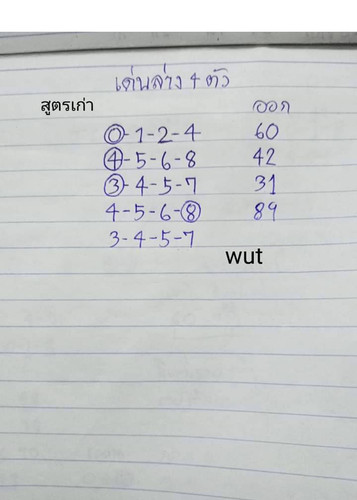 เด่นล่าง 4 ตัว
สูตรเก่า ออก
0-1-2-4 60
4-5-6-8 42
3-4-5-7 31
4-5-6-8 89
3-4-5-7
wut